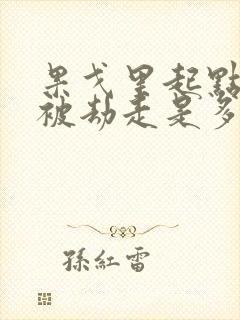 果戈里起點
被劫走是多
孫紅雷